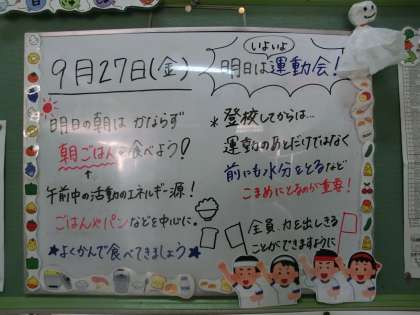 9月27日(金)
いよいよ
明日は運動会!
明日の朝は かならず
朝ごはんを食べよう!
↑
午前中の活動のエネルギー源!
ごはんやパンなどを中心に。
★よくかんで食べてきましょう★
*登校してからは…
運動のあとだけではなく
前にも水分をとるなど
こまめにとるのが重要!
全員、力を出しきる
ことができますように